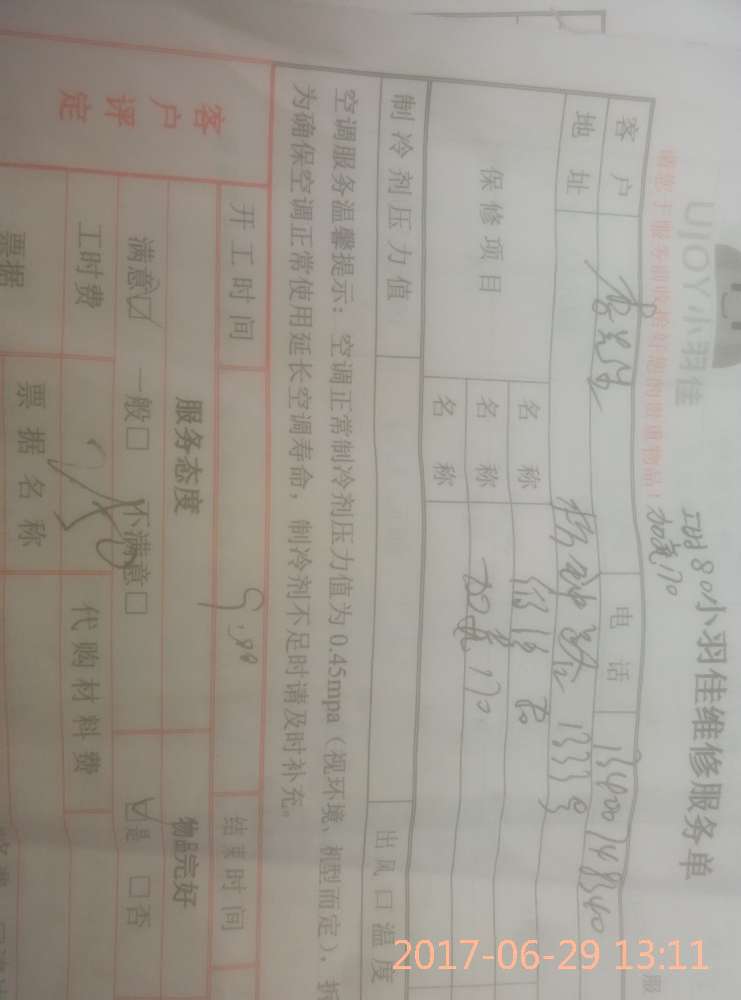 UJOY小羽佳
小羽佳维修服务单
请您于服务前收拾好您的贵重物品!
加氟170
客户
电话 13400748340
地址 1333号
保修项目
名称
80
名称 加氟170
名称
制冷剂压力值
出风口温度
空调服务温馨提示：空调正常制冷剂压力值为0.45mpa（视环境、机型而定），拆
为确保空调正常使用延长空调寿命，制冷剂不足时请及时补充。
开工时间
结束时间
客户评定
服务态度
物品完好
满意☑ 一般□ 不满意□
☑是 □否
工时费
代购材料费
票据
票据名称
2017-06-29 13:11